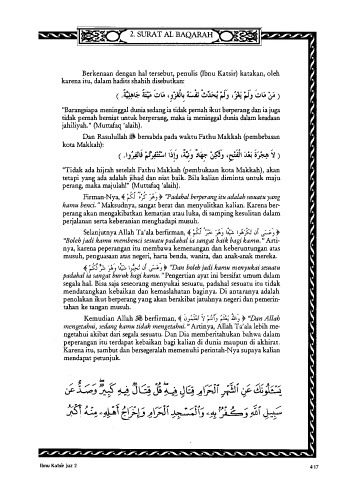 2. SURAT AL BAQARAH
Berkenaan dengan hal tersebut, penulis (Ibnu Katsir) katakan, oleh
karena itu, dalam hadits shahih disebutkan:
( مَنْ مَاتَ وَلَمْ يَغْزُ، وَلَمْ يُحَدِّثْ نَفْسَهُ بِالْغَزْوِ، مَاتَ مِيْتَةً جَاهِلِيَّةً. )
"Barangsiapa meninggal dunia sedang ia tidak pernah ikut berperang dan ia juga
tidak pernah berniat untuk berperang, maka ia meninggal dunia dalam keadaan
jahiliyah." (Muttafaq 'alaih).
Dan Rasulullah ﷺ bersabda pada waktu Fathu Makkah (pembebasan
kota Makkah):
( لاَ هِجْرَةَ بَعْدَ الْفَتْحِ، وَلَكِنْ جِهَادٌ وَنِيَّةٌ، وَإِذَا اسْتُنْفِرْتُمْ فَانْفِرُوا. )
"Tidak ada hijrah setelah Fathu Makkah (pembukaan kota Makkah), akan
tetapi yang ada adalah jihad dan niat baik. Bila kalian diminta untuk maju
perang, maka majulah!" (Muttafaq 'alaih).
Firman-Nya, ﴿ وَهُوَ كُرْهٌ لَّكُمْ ﴾ "Padahal berperang itu adalah sesuatu yang
kamu benci." Maksudnya, sangat berat dan menyulitkan kalian. Karena ber-
perang akan mengakibatkan kematian atau luka, di samping kesulitan dalam
perjalanan serta keberanian menghadapi musuh.
Selanjutnya Allah Ta'ala berfirman, ﴿ وَعَسَى أَن تَكْرَهُوا شَيْئًا وَهُوَ خَيْرٌ لَّكُمْ ﴾
"Boleh jadi kamu membenci sesuatu padahal ia sangat baik bagi kamu." Arti-
nya, karena peperangan itu membawa kemenangan dan keberuntungan atas
musuh, penguasaan atas negeri, harta benda, wanita, dan anak-anak mereka.
﴿ وَعَسَى أَن تُحِبُّوا شَيْئًا وَهُوَ شَرٌّ لَّكُمْ ﴾ "Dan boleh jadi kamu menyukai sesuatu
padahal ia sangat buruk bagi kamu." Pengertian ayat ini bersifat umum dalam
segala hal. Bisa saja seseorang menyukai sesuatu, padahal sesuatu itu tidak
mendatangkan kebaikan dan kemaslahatan baginya. Di antaranya adalah
penolakan ikut berperang yang akan berakibat jatuhnya negeri dan pemerin-
tahan ke tangan musuh.
Kemudian Allah ﷻ berfirman, ﴿ وَاللَّهُ يَعْلَمُ وَأَنتُمْ لاَ تَعْلَمُونَ ﴾ "Dan Allah
mengetahui, sedang kamu tidak mengetahui." Artinya, Allah Ta'ala lebih me-
ngetahui akibat dari segala sesuatu. Dan Dia memberitahukan bahwa dalam
peperangan itu terdapat kebaikan bagi kalian di dunia maupun di akhirat.
Karena itu, sambut dan bersegeralah memenuhi perintah-Nya supaya kalian
mendapat petunjuk.
يَسْـَٔلُونَكَ عَنِ ٱلشَّهْرِ ٱلْحَرَامِ قِتَالٍ فِيهِ قُلْ قِتَالٌ فِيهِ كَبِيرٌ وَصَدٌّ عَن
سَبِيلِ ٱللَّهِ وَكُفْرٌۢ بِهِۦ وَٱلْمَسْجِدِ ٱلْحَرَامِ وَإِخْرَاجُ أَهْلِهِۦ مِنْهُ أَكْبَرُ
Ibnu Katsir Juz 2
417